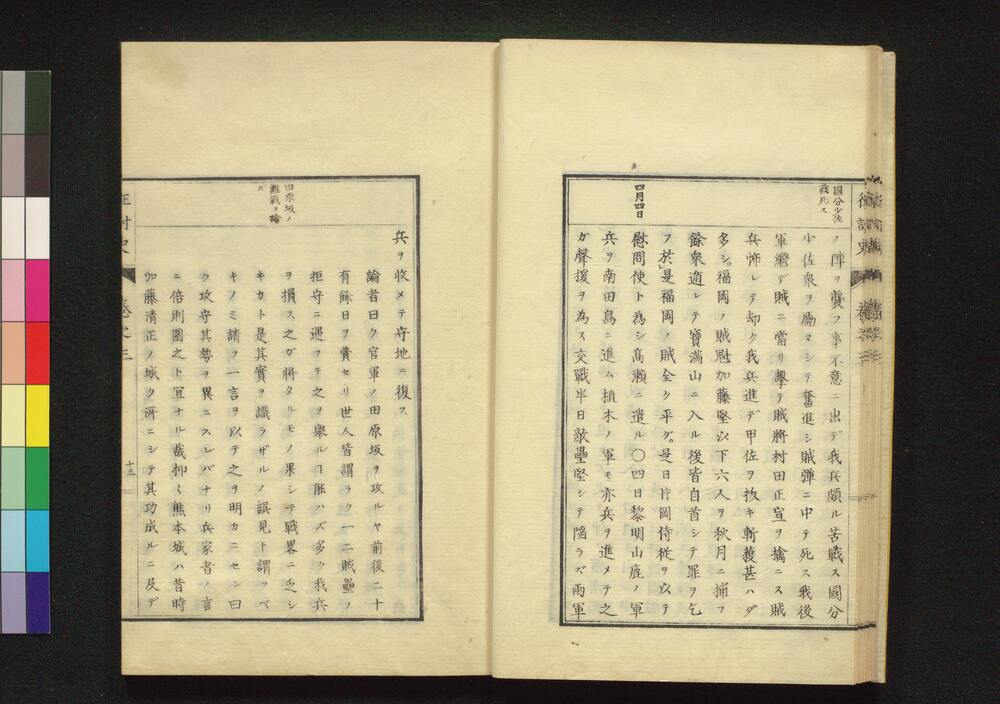 國分少佐
戰死ス
ノ陣ヲ襲フ事不意ニ出デ我兵頗ル苦戰ス國分
少佐衆ヲ勵マシテ奮進シ賊彈ニ中テ死ス我後
軍繼デ賊ニ當リ擊テ賊將村田正宣ヲ擒ニス賊
兵怖レテ却ク我兵進デ甲佐ヲ拔キ斬獲甚ハダ
多シ。福岡ノ賊魁加藤堅以下六人ヲ秋月ニ捕フ
餘衆遁レテ寶滿山ニ入ル後皆自首シテ罪ヲ乞
フ於是福岡ノ賊全ク平グ。是日片岡侍從ヲ以テ
四月四日
慰問使ト為シ高瀬ニ遣ル〇四日黎明山鹿ノ軍
兵ヲ南田島ニ進ム植木ノ軍モ亦兵ヲ進メテ之
ガ聲援ヲ為ス交戰半日敵壘堅シテ陷ラズ兩軍
兵ヲ收メテ守地ニ復ス
田原坂ノ
難戰ヲ論
ズ
論者曰ク官軍ノ田原坂ヲ攻ルヤ前後二十
有餘日ヲ費セリ世人皆謂ラク一二賊壘ノ
拒守ニ遇フテ之ヲ擧ルヿ能ハズ多ク我兵
ヲ損ス之ガ將タルモノ果シテ戰畧ニ乏シ
キカト是其實ヲ識ラザルノ誤見ト謂フベ
キノミ請フ一言ヲ以テ之ヲ明カニセン曰
ク攻守其勢ヲ異ニスレバナリ兵家者ノ言
ニ倍則圍之ト冝ナル哉抑〻熊本城ハ昔時
加藤清正ノ城ク所ニシテ其功成ルニ及デ
征討史
卷之三
十三